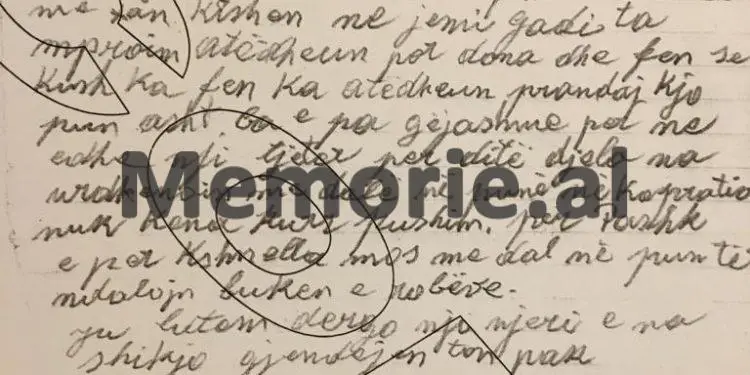 me zån Kishen ne jemi gadi ta
mproim atëdheun por dona dhe fen se
Kush Ka fen Ka atëdheun prandaj Kjo
pun asht ba e pa gëjasmue per ne
edhe nji tjetër per ditë djela na
urdhenoin me dalë në punë në koprativ
nuk Kena Kurr pushim. per Pashk
e per Kshnella mos me dal në pun të
ndalojn buken e robëve.
ju lutem dergo njo njeri e na
shikjo gjendajen ton pak
Memorie.al